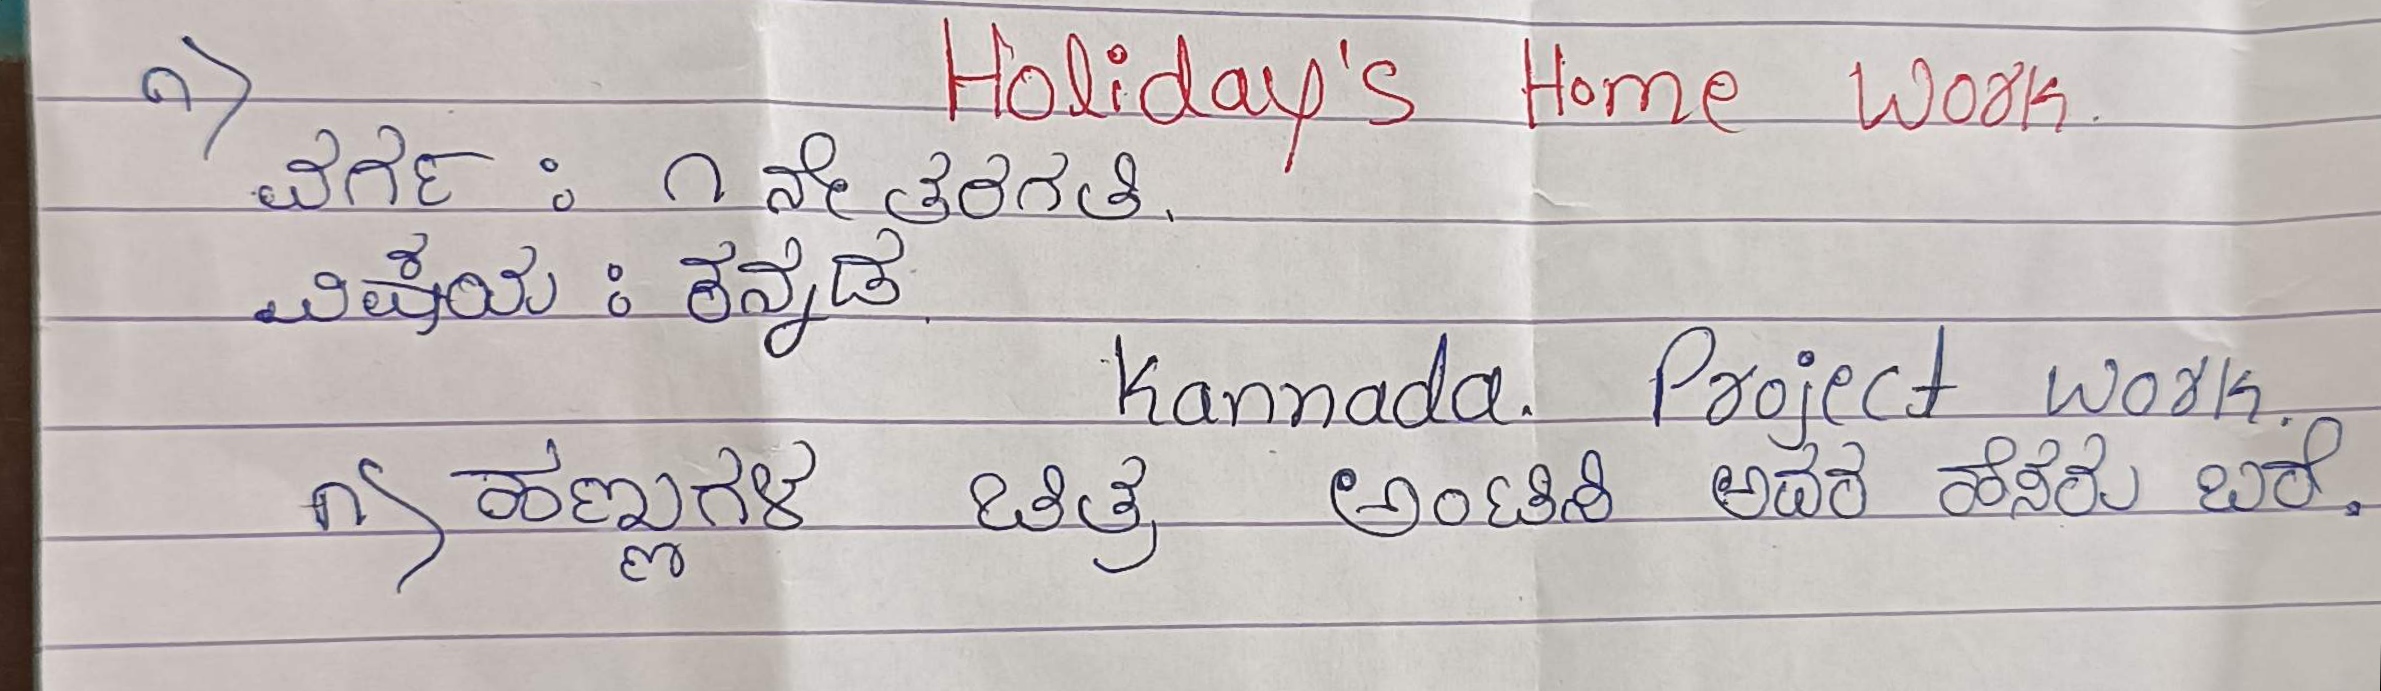 ೧) Holiday's Home Work.
ವರ್ಗ : ೧ ನೇ ತರಗತಿ.
ವಿಷಯ : ಕನ್ನಡ.
Kannada. Project work.
೧) ಹಣ್ಣುಗಳ ಚಿತ್ರ ಅಂಟಿಸಿ ಅವರ ಹೆಸರು ಬರೆ.